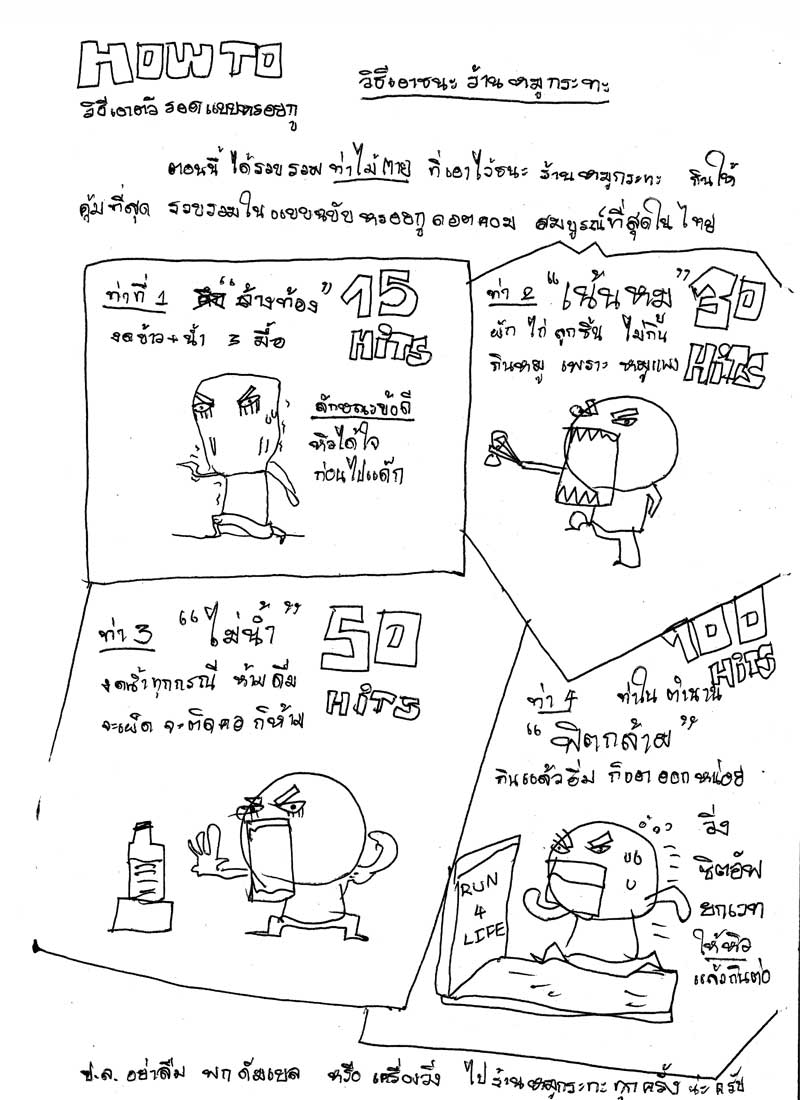 HOW TO
วิธีเอาชนะ ร้านหมูกระทะ
วิธีเอาตัวรอดแบบหรอยกู
ตอนนี้ ได้รวบรวม ท่าไม้ตาย ที่เอาไว้ชนะ ร้านหมูกระทะ กินให้
คุ้มที่สุด รวบรวมในแบบฉบับหรอยกูดอตคอม สมบูรณ์ที่สุดในไทย
ท่าที่ 1 "ล้างท้อง" 15
HITS
งดข้าว + น้ำ 3 มื้อ
ลักษณะข้อดี
หิวได้ใจ
ก่อนไปแด๊ก
ท่า 2 "เน้นหมู" 30
HITS
ผัก ไก่ ลูกชิ้น ไม่กิน
กินหมู เพราะ หมูแพง
ท่า 3 "ไม่น้ำ" 50
HITS
งดน้ำทุกกรณี ห้ามดื่ม
จะเผ็ด จะติดคอ ก็ห้าม
100
HITS
ท่า 4 ท่าในตำนาน
"ฟิตกล้าม"
กินแล้วอิ่ม ก็เอาออกหน่อย
วิ่ง
ซิตอัพ
ยกเวท
ให้หิว
แล้วกินต่อ
RUN
4
LIFE
ป.ล. อย่าลืม พกดัมเบล หรือ เครื่องวิ่ง ไปร้านหมูกระทะทุกครั้ง นะครับ